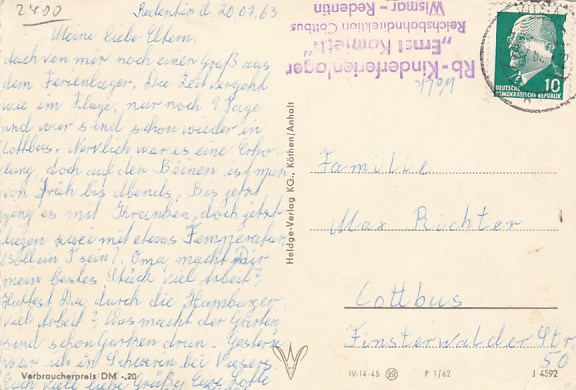 2400
Redentin d. 20.07.63
Meine liebe Eltern.
Auch von mir noch einen Gruß aus
dem Ferienlager. Die Zeit vergeht
wie im Fluge, nur noch 9 Tage
und wir sind schon wieder in
Cottbus. Nervlich war es eine Erho-
lung, doch auf der Beinen ist man
von Früh bis Abends. Bis jetzt
ging es mit Kranken, doch jetzt
lagen zwei mit etwas Temperatur
(soll ein T sein). Oma, macht Dir
mein bestes Stück viel Arbeit?
Hattest Du durch die Hamburger
viel Arbeit? Was macht der Garten,
sind schon Gurken dran. Gestern
war ich in Schwerin bei
Euch viel liebe Grüße Eure
Verbraucherpreis DM -,20
Heldge-Verlag KG., Köthen/Anhalt
Rb-Kinderferienlager
„Ernst Kamieth"
Wismar - Redentin
Reichsbahndirektion Cottbus
DEUTSCHE
DEMOKRATISCHE REPUBLIK
10
Familie
Max Richter
Cottbus
Finsterwalder Str.
50
IV-14-45
P 1/62
J 4592